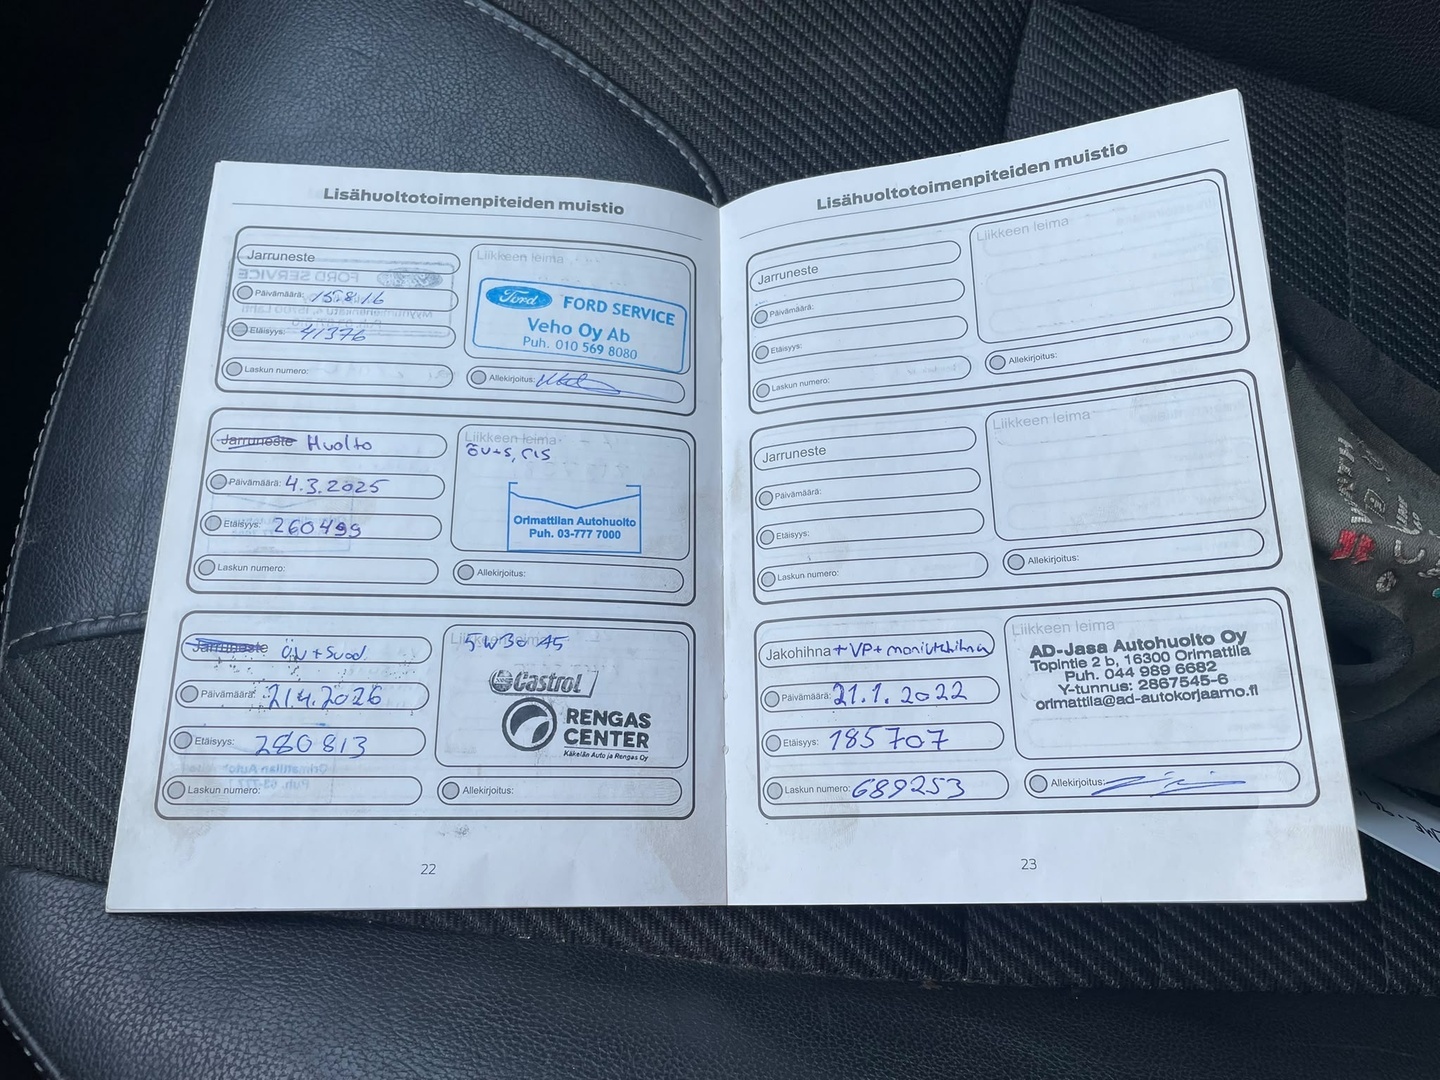 Lisähuoltotoimenpiteiden muistio
Jarruneste
Päivämäärä: 15.8.16
Etäisyys: 41376
Laskun numero:
Liikkeen leima
Ford FORD SERVICE
Veho Oy Ab
Puh. 010 569 8080
Allekirjoitus:
Jarruneste Huolto
Päivämäärä: 4.3.2025
Etäisyys: 260499
Laskun numero:
Liikkeen leima
öv+s, cis
Orimattilan Autohuolto
Puh. 03-777 7000
Allekirjoitus:
Jarruneste öv+suod.
Päivämäärä: 21.4.2026
Etäisyys: 280813
Laskun numero:
Liikkeen leima
5W30 A5
Castrol
RENGAS
CENTER
Käkelän Auto ja Rengas Oy
Allekirjoitus:
22
Lisähuoltotoimenpiteiden muistio
Jarruneste
Päivämäärä:
Etäisyys:
Laskun numero:
Liikkeen leima
Allekirjoitus:
Jarruneste
Päivämäärä:
Etäisyys:
Laskun numero:
Liikkeen leima
Allekirjoitus:
Jakohihna + VP + moniurahihna
Päivämäärä: 21.1.2022
Etäisyys: 185707
Laskun numero: 689253
Liikkeen leima
AD-Jasa Autohuolto Oy
Topintie 2 b, 16300 Orimattila
Puh. 044 989 6682
Y-tunnus: 2867545-6
orimattila@ad-autokorjaamo.fi
Allekirjoitus:
23